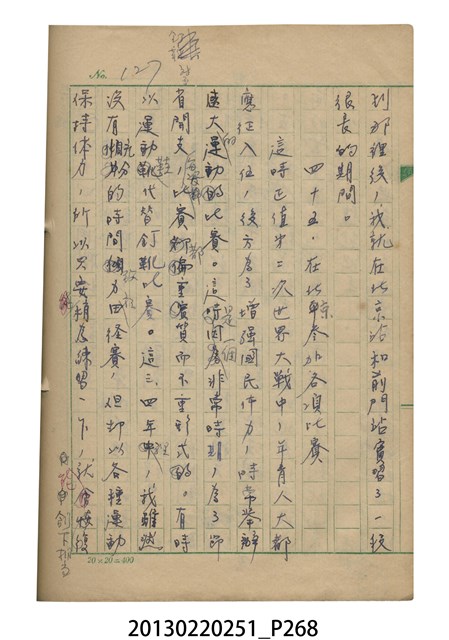 No. 127
到那裡後，我就在北京站和前門站實習了一段
很長的期間。
四十五．在北京參加各項比賽
這時正值第二次世界大戰中，年青人大都
應征入伍，後方為了增強國民体力，時常舉辦
遠大的運動比賽。這是一個非常時期，為了節
省開支，比賽都偏重實質而不重形式的。有時
以運動鞋代替釘鞋比賽。這三、四年中，我雖然
沒有的時間致力田徑賽，但却以各種運動
保持体力，所以只要稍為練習一下，就會恢復
20×20=400
20130220251_P268